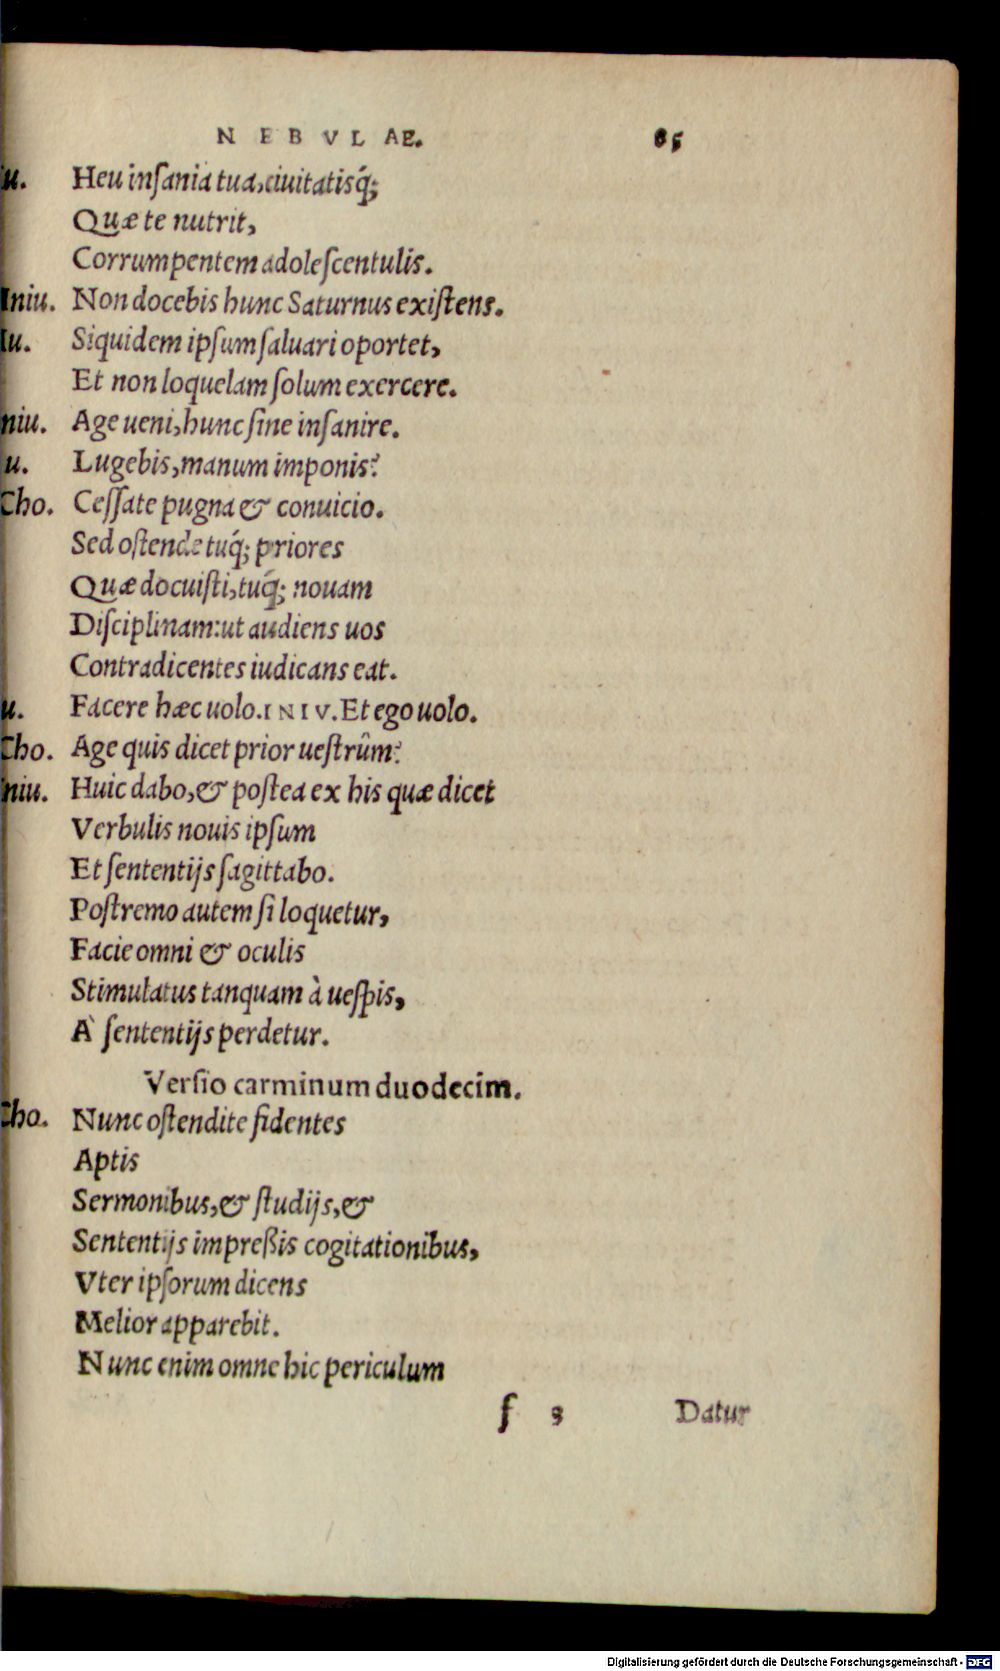 NEBVLAE. 85
Iu. Heu inſania tua, ciuitatisq́;
Quæ te nutrit,
Corrumpentem adoleſcentulis.
Iniu. Non docebis hunc Saturnus exiſtens.
Iu. Siquidem ipſum ſaluari oportet,
Et non loquelam ſolum exercere.
niu. Age ueni, hunc ſine inſanire.
u. Lugebis, manum imponis?
Cho. Ceſſate pugna & conuicio.
Sed oſtende tuq́; priores
Quæ docuiſti, tuq́; nouam
Diſciplinam: ut audiens uos
Contradicentes iudicans eat.
u. Facere hæc uolo. INIV. Et ego uolo.
Cho. Age quis dicet prior ueſtrûm?
niu. Huic dabo, & poſtea ex his quæ dicet
Verbulis nouis ipſum
Et ſententijs ſagittabo.
Poſtremo autem ſi loquetur,
Facie omni & oculis
Stimulatus tanquam à ueſpis,
À ſententijs perdetur.
Verſio carminum duodecim.
Cho. Nunc oſtendite fidentes
Aptis
Sermonibus, & ſtudijs, &
Sententijs impreßis cogitationibus,
Vter ipſorum dicens
Melior apparebit.
Nunc enim omne hic periculum
f 3 Datur
Digitalisierung gefördert durch die Deutsche Forschungsgemeinschaft - DFG